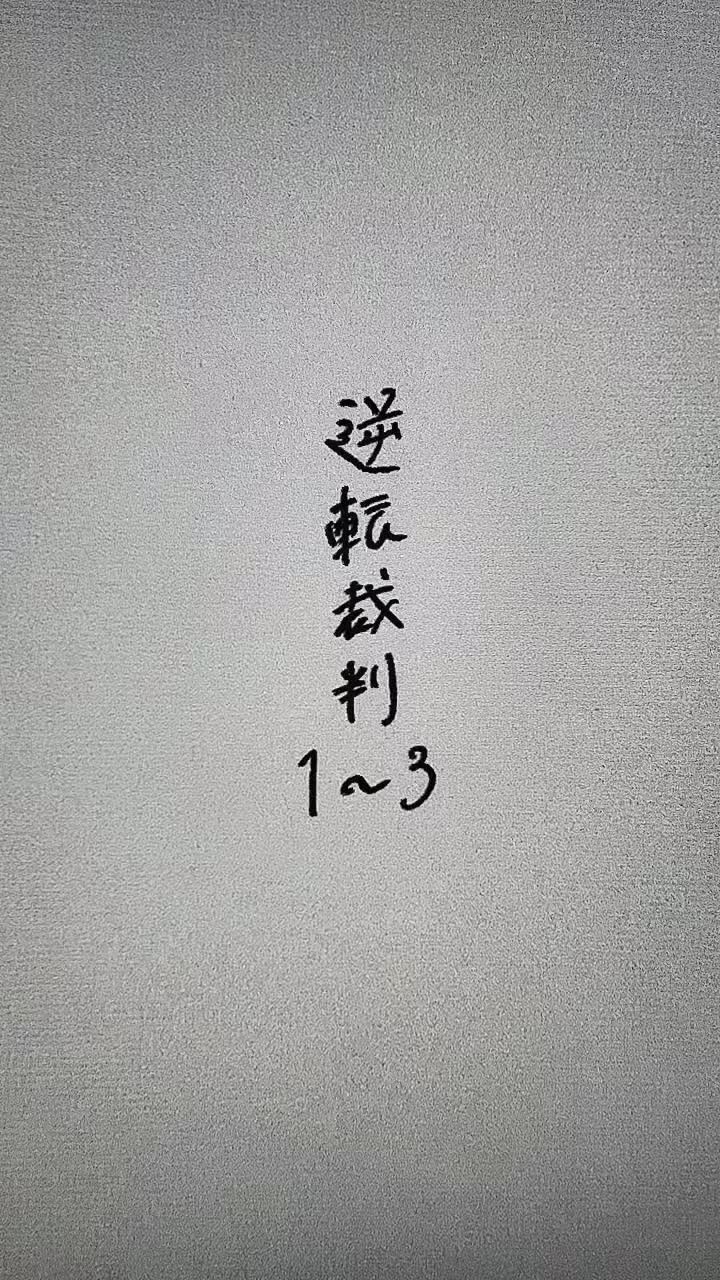 逆転裁判
1~3